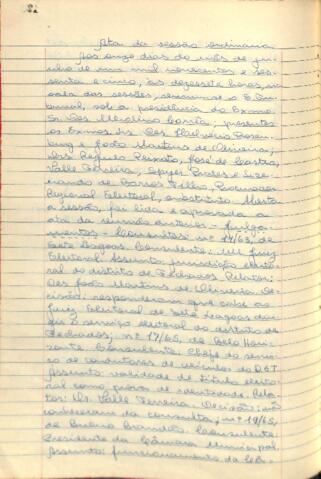 Ata da sessão ordinaria
Aos onze dias do mês de ju-
nho de mil novecentos e ses-
senta e cinco, às dezessete horas, na
sala das sessões, reuniu-se o E. Tri-
bunal, sob a presidência do Exmo
Sr. Des. Merolino Corrêa, presentes
os Exmos. Srs. Des. Helvécio Rosen-
burg e João Martins de Oliveira,
Drs. Régulo Peixoto, José de Castro,
Valle Ferreira, e
de Barros Filho, Procurador
Regional Eleitoral, substituto. Aberta
a sessão, foi lida e aprovada a
ata da reunião anterior. - Julga-
mentos - Consultas: nº 17/65, de
Sete Lagoas. Consulente: MM. Juiz
Eleitoral. Assunto: jurisdição eleito-
ral do distrito de Fechados. Relator:
Des. João Martins de Oliveira. De-
cisão: responderam que cabe ao
Juiz Eleitoral de Sete Lagoas diri-
gir o serviço eleitoral do distrito de
Fechados; nº 17/65, de Belo Hori-
zonte. Consulente: Chefe do servi-
ço de condutores de veículos do D.E.T.
Assunto: validade de título eleito-
ral como prova de identidade. Rela-
tor: Dr. Valle Ferreira. Decisão: não
conheceram da consulta; nº 19/65,
de Bueno Brandão. Consulente:
Presidente da Câmara Municipal.
Assunto: funcionamento da Câ-